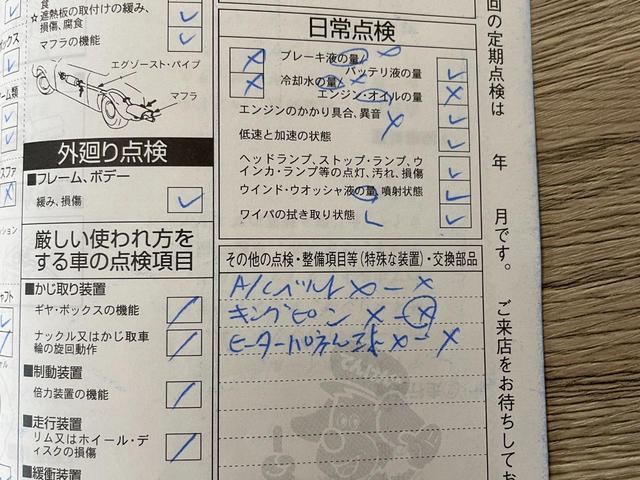 食
☆遮熱板の取付けの緩み、
損傷、腐食
マフラの機能
エグゾースト・パイプ
マフラ
外廻り点検
■フレーム、ボデー
緩み、損傷
厳しい使われ方を
する車の点検項目
■かじ取り装置
ギヤ・ボックスの機能
ナックル又はかじ取車
輪の旋回動作
■制動装置
倍力装置の機能
■走行装置
リム又はホイール・デ
ィスクの損傷
■緩衝装置
日常点検
ブレーキ液の量
バッテリ液の量
冷却水の量
エンジン・オイルの量
エンジンのかかり具合、異音
低速と加速の状態
ヘッドランプ、ストップ・ランプ、ウ
インカ・ランプ等の点灯、汚れ、損傷
ウインド・ウオッシャ液の量、噴射状態
ワイパの拭き取り状態
その他の点検・整備項目等(特殊な装置)・交換部品
A/Cベルト x - x
キングピン x - x
回の定期点検は 年 月です。 ご来店をお待ちしてお